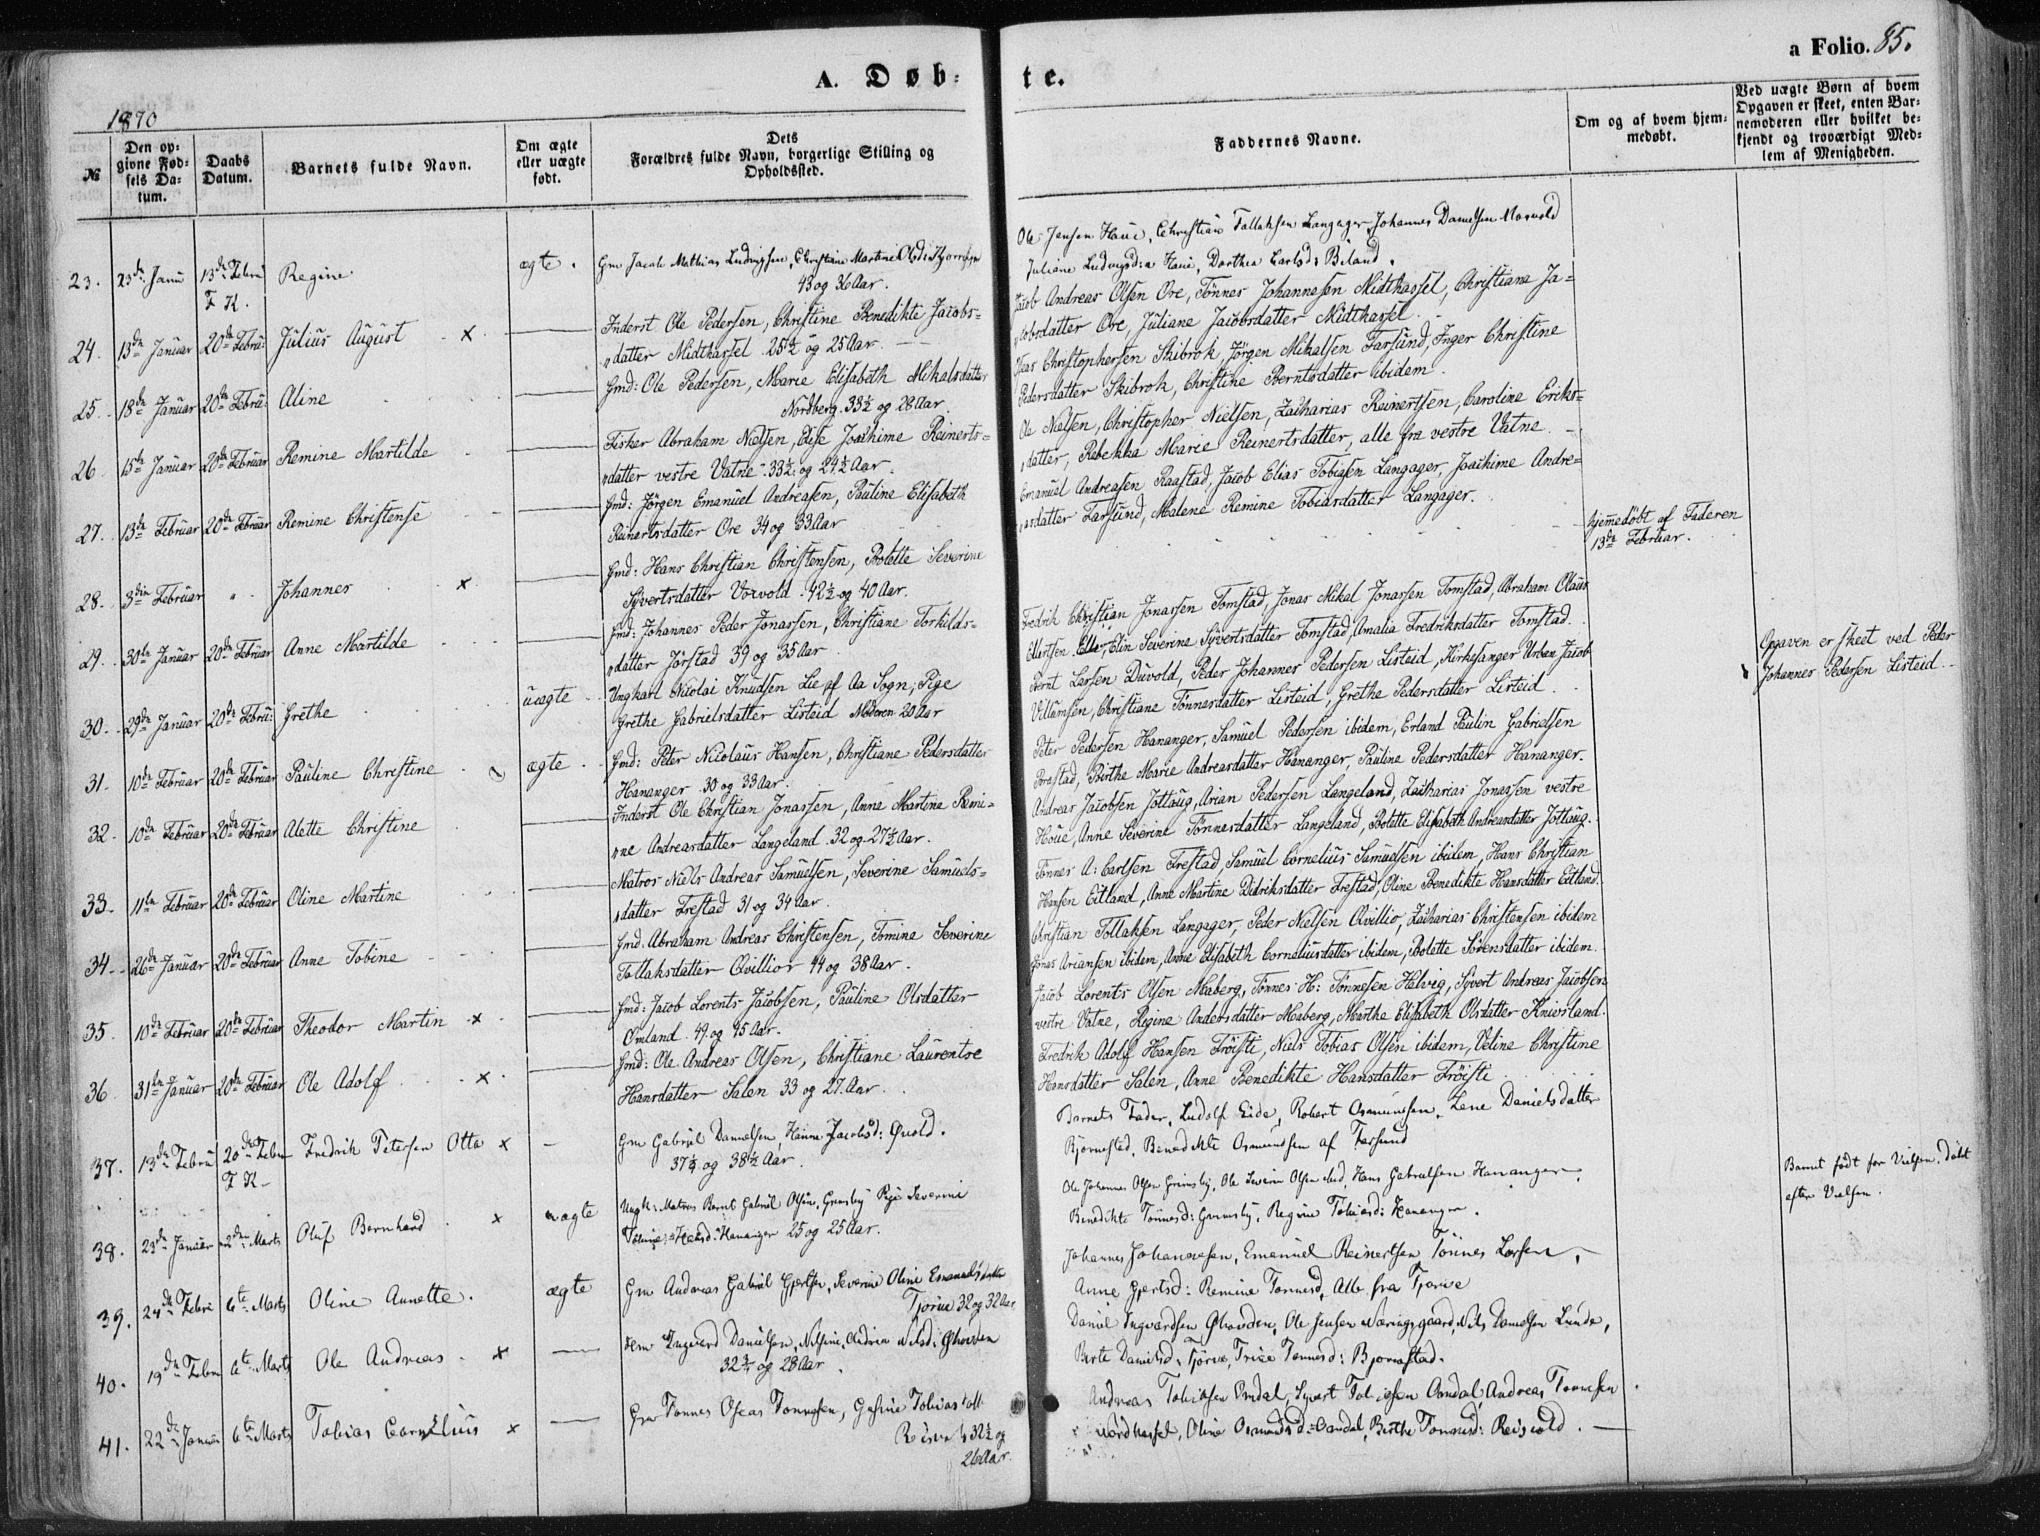 A. Døb-
te.
a Folio. 85.
1870
№
Den op-
givne Fød-
sels Da-
tum.
Daabs
Datum.
Barnets fulde Navn.
Om ægte
eller uægte
født.
Dets
Forældres fulde Navn, borgerlige Stilling og
Opholdssted.
Faddernes Navne.
Om og af hvem hjem-
medøbt.
Ved uægte Børn af hvem
Opgaven er skeet, enten Bar-
nemoderen eller hvilket be-
kjendt og troværdigt Med-
lem af Menigheden.
23. 23de Janu 13de Febru Regine ægte. Gm Jacob Mathias Ludvigsen, Christiane Martine Olsd:
F K. 43 og 36 Aar.
Ole Jensen Haue, Christian Tallaksen Langager, Johannes Danielsen
Juliane Ludvigsd: Haue, Dorthea Carlsd: Biland.
24. 13de Januar 20de Febru: Julius August x Inderst Ole Pedersen, Christine Benedikte Jacobs-
datter Midthassel 25½ og 25 Aar.
Jacob Andreas Olsen Ore, Tönnes Johannesen Midthassel, Christiane Ja-
cobsdatter Ore, Juliane Jacobsdatter Midthassel.
25. 18de Januar 20de Febru: Aline Gmd: Ole Pedersen, Marie Elisabeth Mikalsdatter
Nordberg. 33½ og 28 Aar.
Oseas Christophersen Skibrok, Jörgen Mikalsen Farsund, Inger Christine
Pedersdatter Skibrok, Christine Berntsdatter ibidem.
26. 15de Januar 20de Februar Remine Martilde Fisker Abraham Nielsen, Elise Joachime Reinerts-
datter vestre Vatne. 33½ og 24½ Aar.
Ole Nielsen, Christopher Nielsen, Zacharias Reinertsen, Caroline Eriks-
datter, Rebekka Marie Reinertsdatter, alle fra vestre Vatne.
27. 13de Februar 20de Februar Remine Christense Gmd: Jörgen Emanuel Andreasen, Pauline Elisabeth
Reinertsdatter Ore 34 og 33 Aar
Emanuel Andreasen Raastad, Jacob Elias Tobiasen Langager, Joachime Andre-
asdatter Farsund, Malene Remine Tobiasdatter Langager.
28. 3die Februar " Johannes x Gmd: Hans Christian Christensen, Bolette Severine
Syvertsdatter Vorvold. 42½ og 40 Aar.
hjemedöbt af Faderen
13de Februar.
29. 30te Januar 20de Februar Anne Martilde Gmd: Johannes Peder Jonassen, Christiane Torkilds-
datter Jörstad 39 og 35 Aar
Fredrik Christian Jonassen Tomstad, Jonas Mikal Jonassen Tomstad, Abraham Olaus
Ellertsen Elle, Elin Severine Syvertsdatter Tomstad, Amalia Fredriksdatter Tomstad.
30. 29de Januar 20de Febru: Grethe uægte Ungkarl Nicolai Knudsen Lie af Aa Sogn, Pige
Grethe Gabrielsdatter Listeid Moderen 20 Aar
Bernt Larsen Duvold, Peder Johannes Pedersen Listeid, Kirkesanger Urban Jacob
Villumsen, Christiane Tönnesdatter Listeid, Grethe Pedersdatter Listeid.
Opgaven er skeet ved Peder
Johannes Pedersen Listeid.
31. 10de Februar 20de Februar Pauline Christine ægte Gmd: Peter Nicolaus Hansen, Christiane Pedersdatter
Hananger 30 og 33 Aar.
Peter Pedersen Hananger, Samuel Pedersen ibidem, Erland Paulin Gabrielsen
Prastad, Birthe Marie Andreasdatter Hananger, Pauline Pedersdatter Hananger.
32. 10de Februar 20de Februar Alette Christine Inderst Ole Christian Jonassen, Anne Martine Remi-
ne Andreasdatter Langeland. 32 og 27½ Aar.
Andreas Jacobsen Jöllaug, Arian Pedersen Langeland, Zacharias Jonassen vestre
Houe, Anne Severine Tönnesdatter Langeland, Bolette Elisabeth Andreasdatter Jöllaug.
33. 11te Februar 20de Februar Oline Martine Matros Niels Andreas Samuelsen, Severine Samuels-
datter Frestad 31 og 34 Aar.
Tönnes A: Carlsen Frestad, Samuel Cornelius Samuelsen ibidem, Hans Christian
Hansen Eitland, Anne Martine Didriksdatter Frestad, Oline Benedikte Hansdatter Eitland.
34. 26de Januar 20de Februar Anne Tobine Gmd: Abraham Andreas Christensen, Tomine Severine
Tallaksdatter Qvillior 44 og 38 Aar.
Christian Tollaksen Langager, Peder Nielsen Qvillio, Zacharias Christensen ibidem
Jonas Ariansen ibidem, Anne Elisabeth Corneliusdatter ibidem, Bolette Sörensdatter ibidem.
35. 10de Februar 20de Februar Theodor Martin x Gmd: Jacob Lorents Jacobsen, Pauline Olsdatter
Omland. 49 og 45 Aar.
Jacob Lorents Olsen Maberg, Tönnes H: Tönnesen Helvig, Syvert Andreas Jacobsen
vestre Vatne, Regine Andersdatter Maberg, Marthe Elisabeth Olsdatter Knivsland.
36. 31te Januar 20de Februar Ole Adolf x Gmd: Ole Andreas Olsen, Christiane Laurentse
Hansdatter Salen 33 og 27 Aar.
Fredrik Adolf Hansen Tröiste, Niels Tobias Olsen ibidem, Veline Christine
Hansdatter Salen, Anne Benedikte Hansdatter Tröiste
37. 13de Febru 20de Febru Fredrik Petersen Otto x Gm Gabriel Danielsen, Hanne Jacobsd:
F K 37¼ og 38½ Aar.
Barnets Fader, Ludolf Eide, Robert Osmundsen, Lene Danielsdatter
Bjørnestad, Benedikte Osmundsen af Farsund
38. 23de Januar 2den Marts Oluf Bernhard x uægte Ungk: Matros Bernt Gabriel Olsen, Grimsby Pige Severine
Hananger 25 og 25 Aar.
Ole Johannes Olsen Grimsby, Ole Severin Olsen Hans Gabrielsen Hananger
Benedikte Tönnesd: Grimsby, Regine Tobiasd: Hananger.
Barnet født før Vielsen, døbt
efter Vielsen.
39. 24de Febru 6te Marts Oline Annette. ægte Gm Andreas Gabriel Gjertsen, Severine Oline Emanuelsdatter
Tjørve 32 og 32 Aar
Johannes Johannesen, Emanuel Reinertsen Tönnes Larsen,
Anne Gjertsd: Remine Tonnesd, Alle fra Tjorve
40. 19de Febru 6te Marts Ole Andreas x Gm Ingvard Danielsen, Adriane Nilsd:
32¾ og 28 Aar.
Daniel Ingvardsen, Ole Jensen Næringsgaard, Nils Danielsen Lunde,
Berte Danielsd: Tjörve, Tönnesd: Bjørnestad.
41. 22de Januar 6te Marts Tobias Cornelius x Gm Tonnes Oseas Tonnesen, Gesine Tobiasdatt
Reisvold 32½ og
26 Aar.
Andreas Tobiasen Omdal, Syvert Tobiasen Omdal, Andreas Tonnesen
Nordhassel, Oline Osmundsd: Omdal, Birthe Tonnesd: Reisvold.